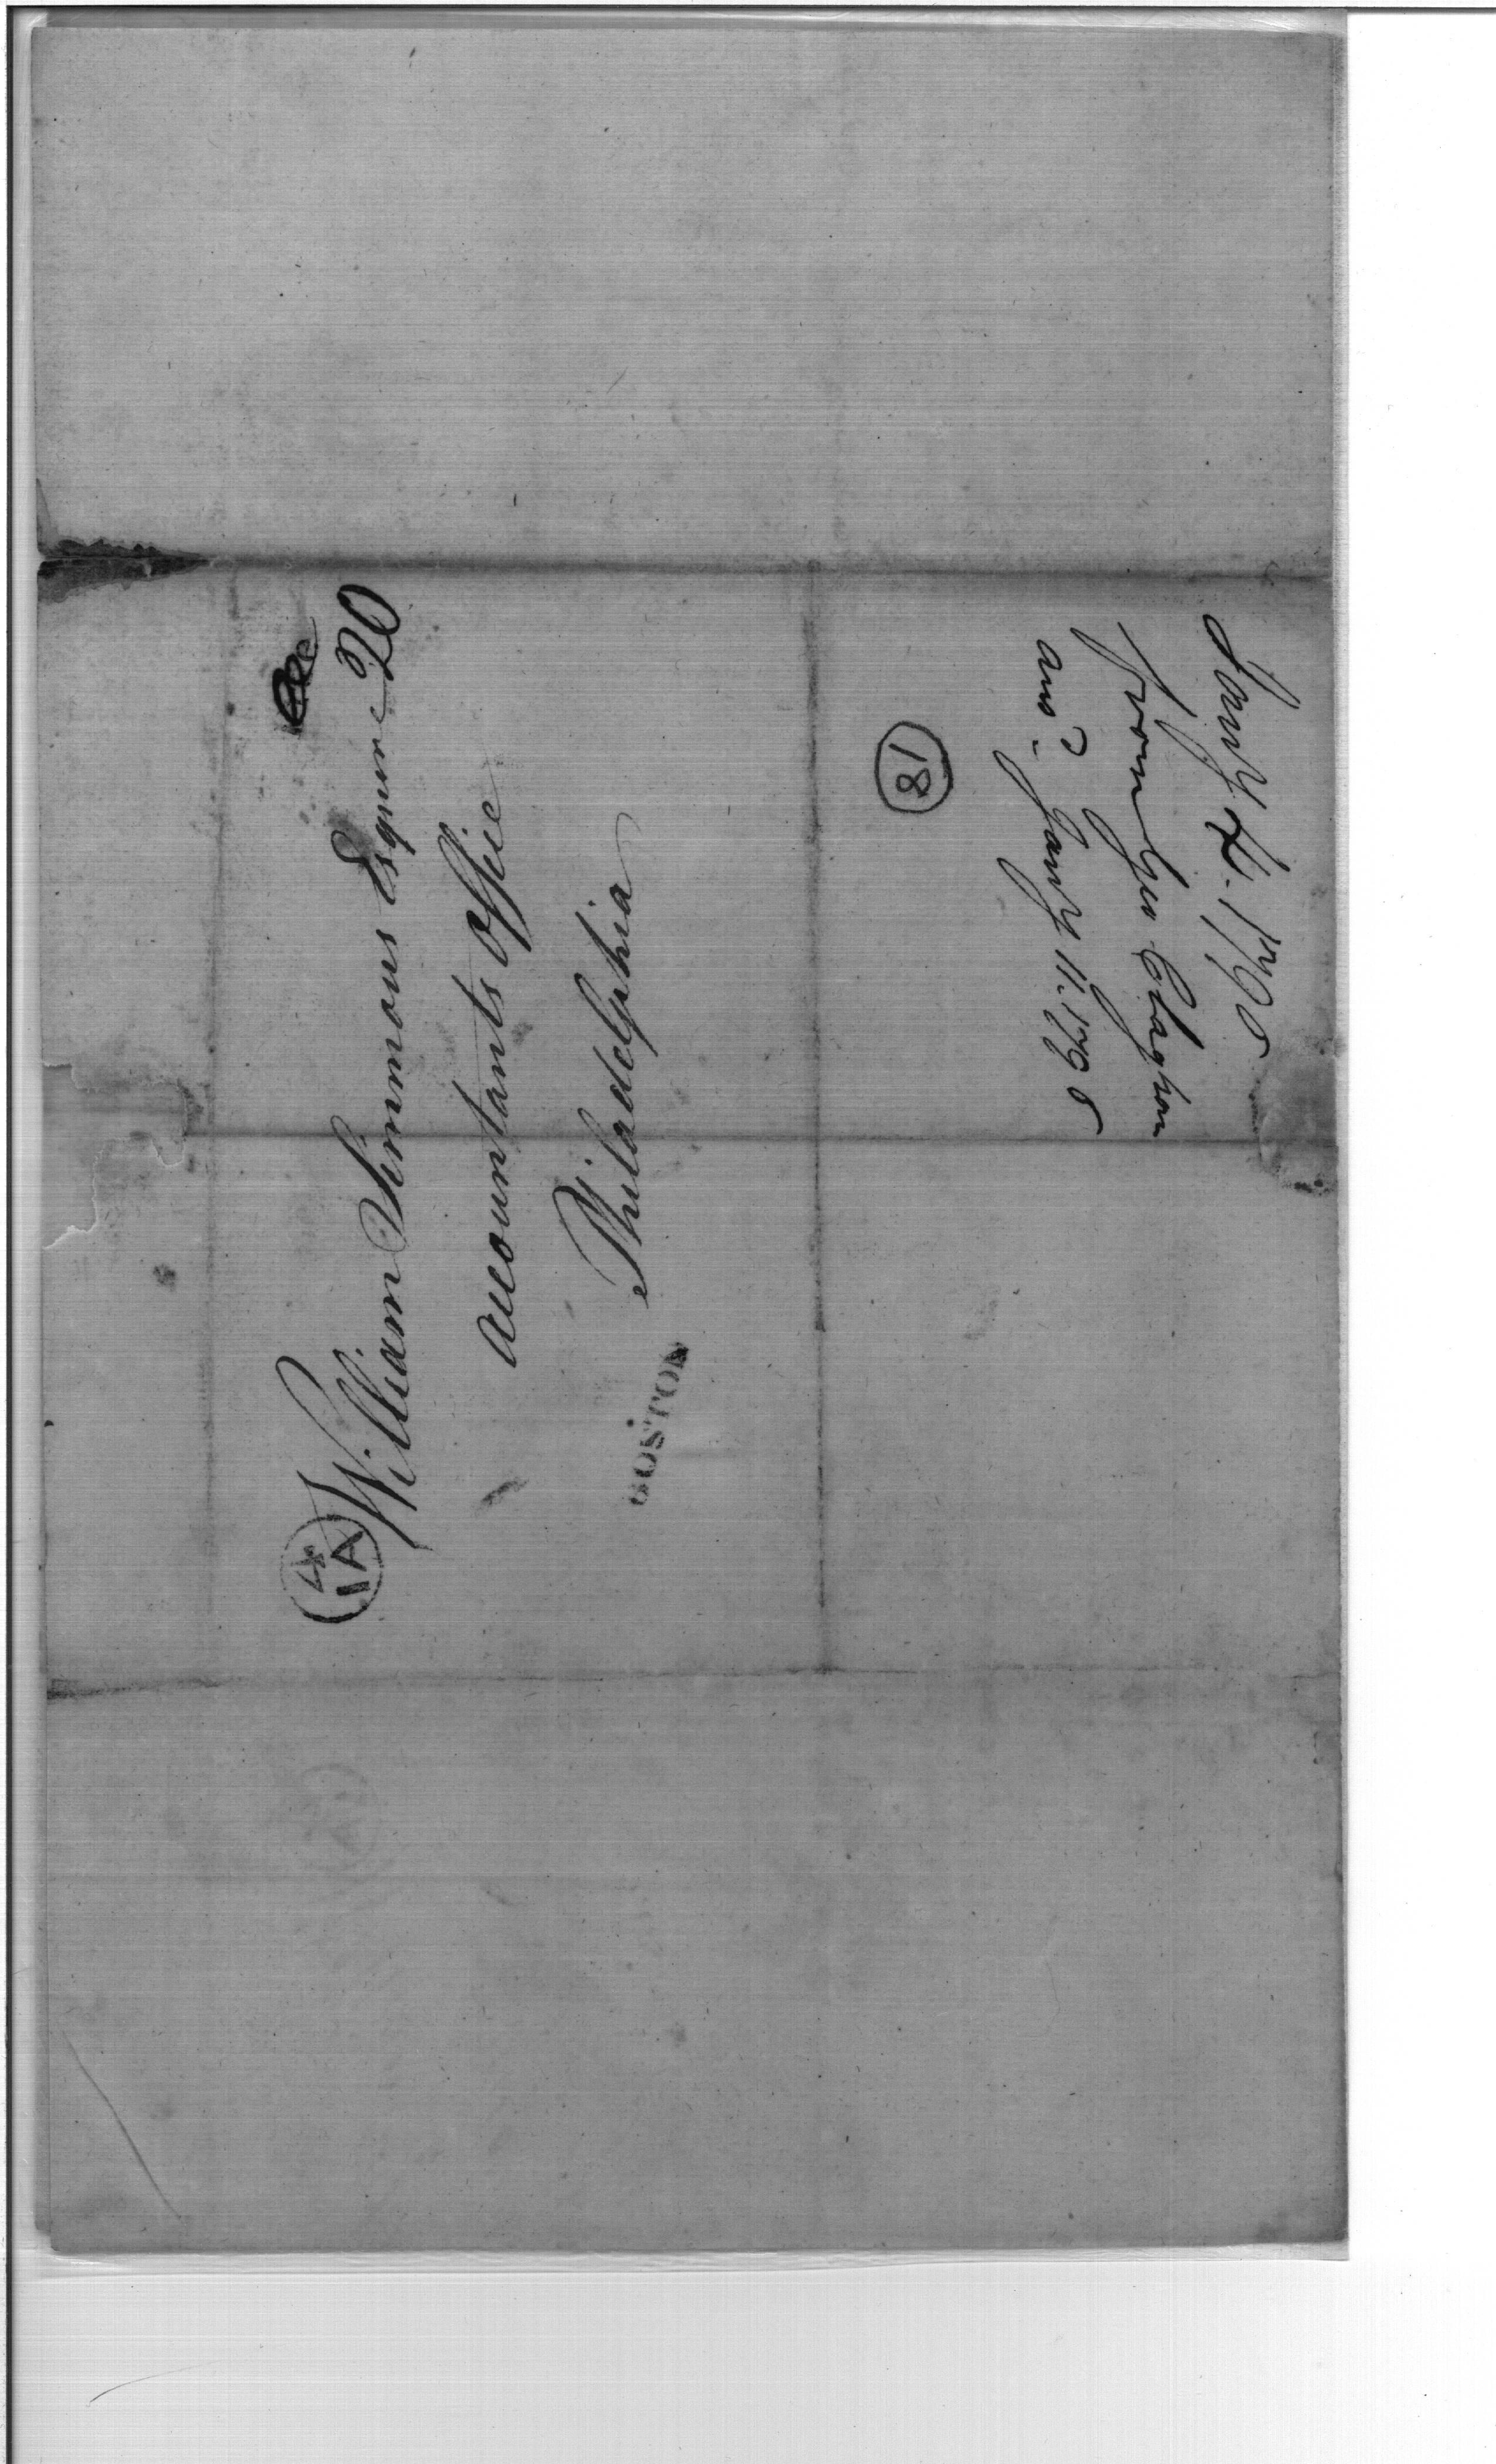 20
William Simmons Esquire
accountants Office
Philadelphia
BOSTON
4
IA
Jany 4. 1796
from Geo Claghorn
ansd. Jany 11. 1796
18